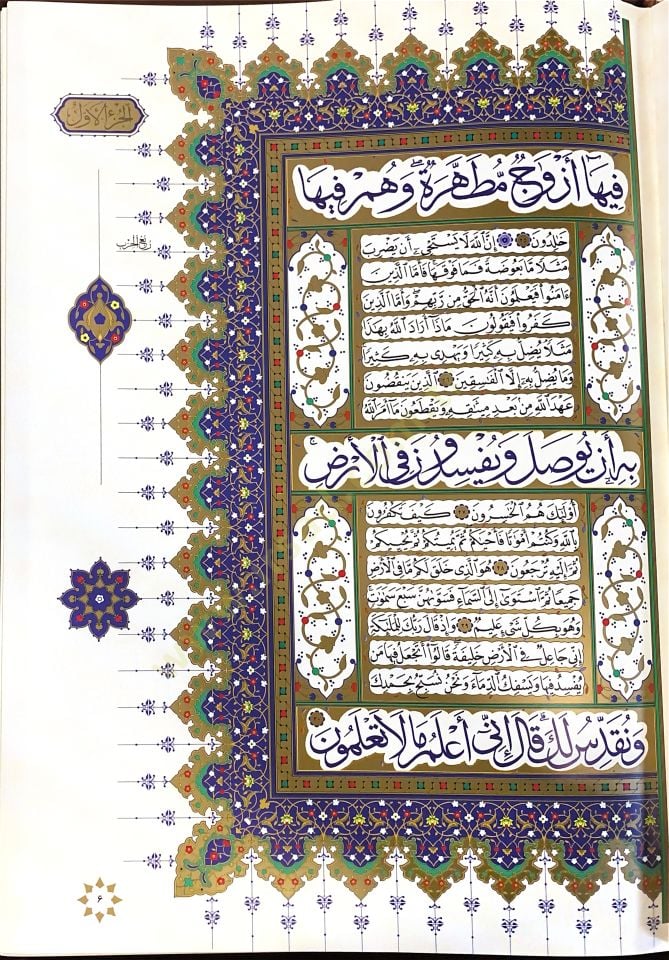 الجزء الأول
ربع الحزب
فِيهَآ أَزْوَٰجٌ مُّطَهَّرَةٌ ۖ وَهُمْ فِيهَا
خَٰلِدُونَ ۝ إِنَّ ٱللَّهَ لَا يَسْتَحْىِۦٓ أَن يَضْرِبَ
مَثَلًا مَّا بَعُوضَةً فَمَا فَوْقَهَا ۚ فَأَمَّا ٱلَّذِينَ
ءَامَنُوا۟ فَيَعْلَمُونَ أَنَّهُ ٱلْحَقُّ مِن رَّبِّهِمْ ۖ وَأَمَّا ٱلَّذِينَ
كَفَرُوا۟ فَيَقُولُونَ مَاذَآ أَرَادَ ٱللَّهُ بِهَٰذَا
مَثَلًا ۘ يُضِلُّ بِهِۦ كَثِيرًا وَيَهْدِى بِهِۦ كَثِيرًا ۚ
وَمَا يُضِلُّ بِهِۦٓ إِلَّا ٱلْفَٰسِقِينَ ۝ ٱلَّذِينَ يَنقُضُونَ
عَهْدَ ٱللَّهِ مِنۢ بَعْدِ مِيثَٰقِهِۦ وَيَقْطَعُونَ مَآ أَمَرَ ٱللَّهُ
بِهِۦٓ أَن يُوصَلَ وَيُفْسِدُونَ فِى ٱلْأَرْضِ ۚ
أُو۟لَٰٓئِكَ هُمُ ٱلْخَٰسِرُونَ ۝ كَيْفَ تَكْفُرُونَ
بِٱللَّهِ وَكُنتُمْ أَمْوَٰتًا فَأَحْيَٰكُمْ ۖ ثُمَّ يُمِيتُكُمْ ثُمَّ يُحْيِيكُمْ
ثُمَّ إِلَيْهِ تُرْجَعُونَ ۝ هُوَ ٱلَّذِى خَلَقَ لَكُم مَّا فِى ٱلْأَرْضِ
جَمِيعًا ثُمَّ ٱسْتَوَىٰٓ إِلَى ٱلسَّمَآءِ فَسَوَّىٰهُنَّ سَبْعَ سَمَٰوَٰتٍ ۚ
وَهُوَ بِكُلِّ شَىْءٍ عَلِيمٌ ۝ وَإِذْ قَالَ رَبُّكَ لِلْمَلَٰٓئِكَةِ
إِنِّى جَاعِلٌ فِى ٱلْأَرْضِ خَلِيفَةً ۖ قَالُوٓا۟ أَتَجْعَلُ فِيهَا مَن
يُفْسِدُ فِيهَا وَيَسْفِكُ ٱلدِّمَآءَ وَنَحْنُ نُسَبِّحُ بِحَمْدِكَ
وَنُقَدِّسُ لَكَ ۖ قَالَ إِنِّىٓ أَعْلَمُ مَا لَا تَعْلَمُونَ ۝
٦